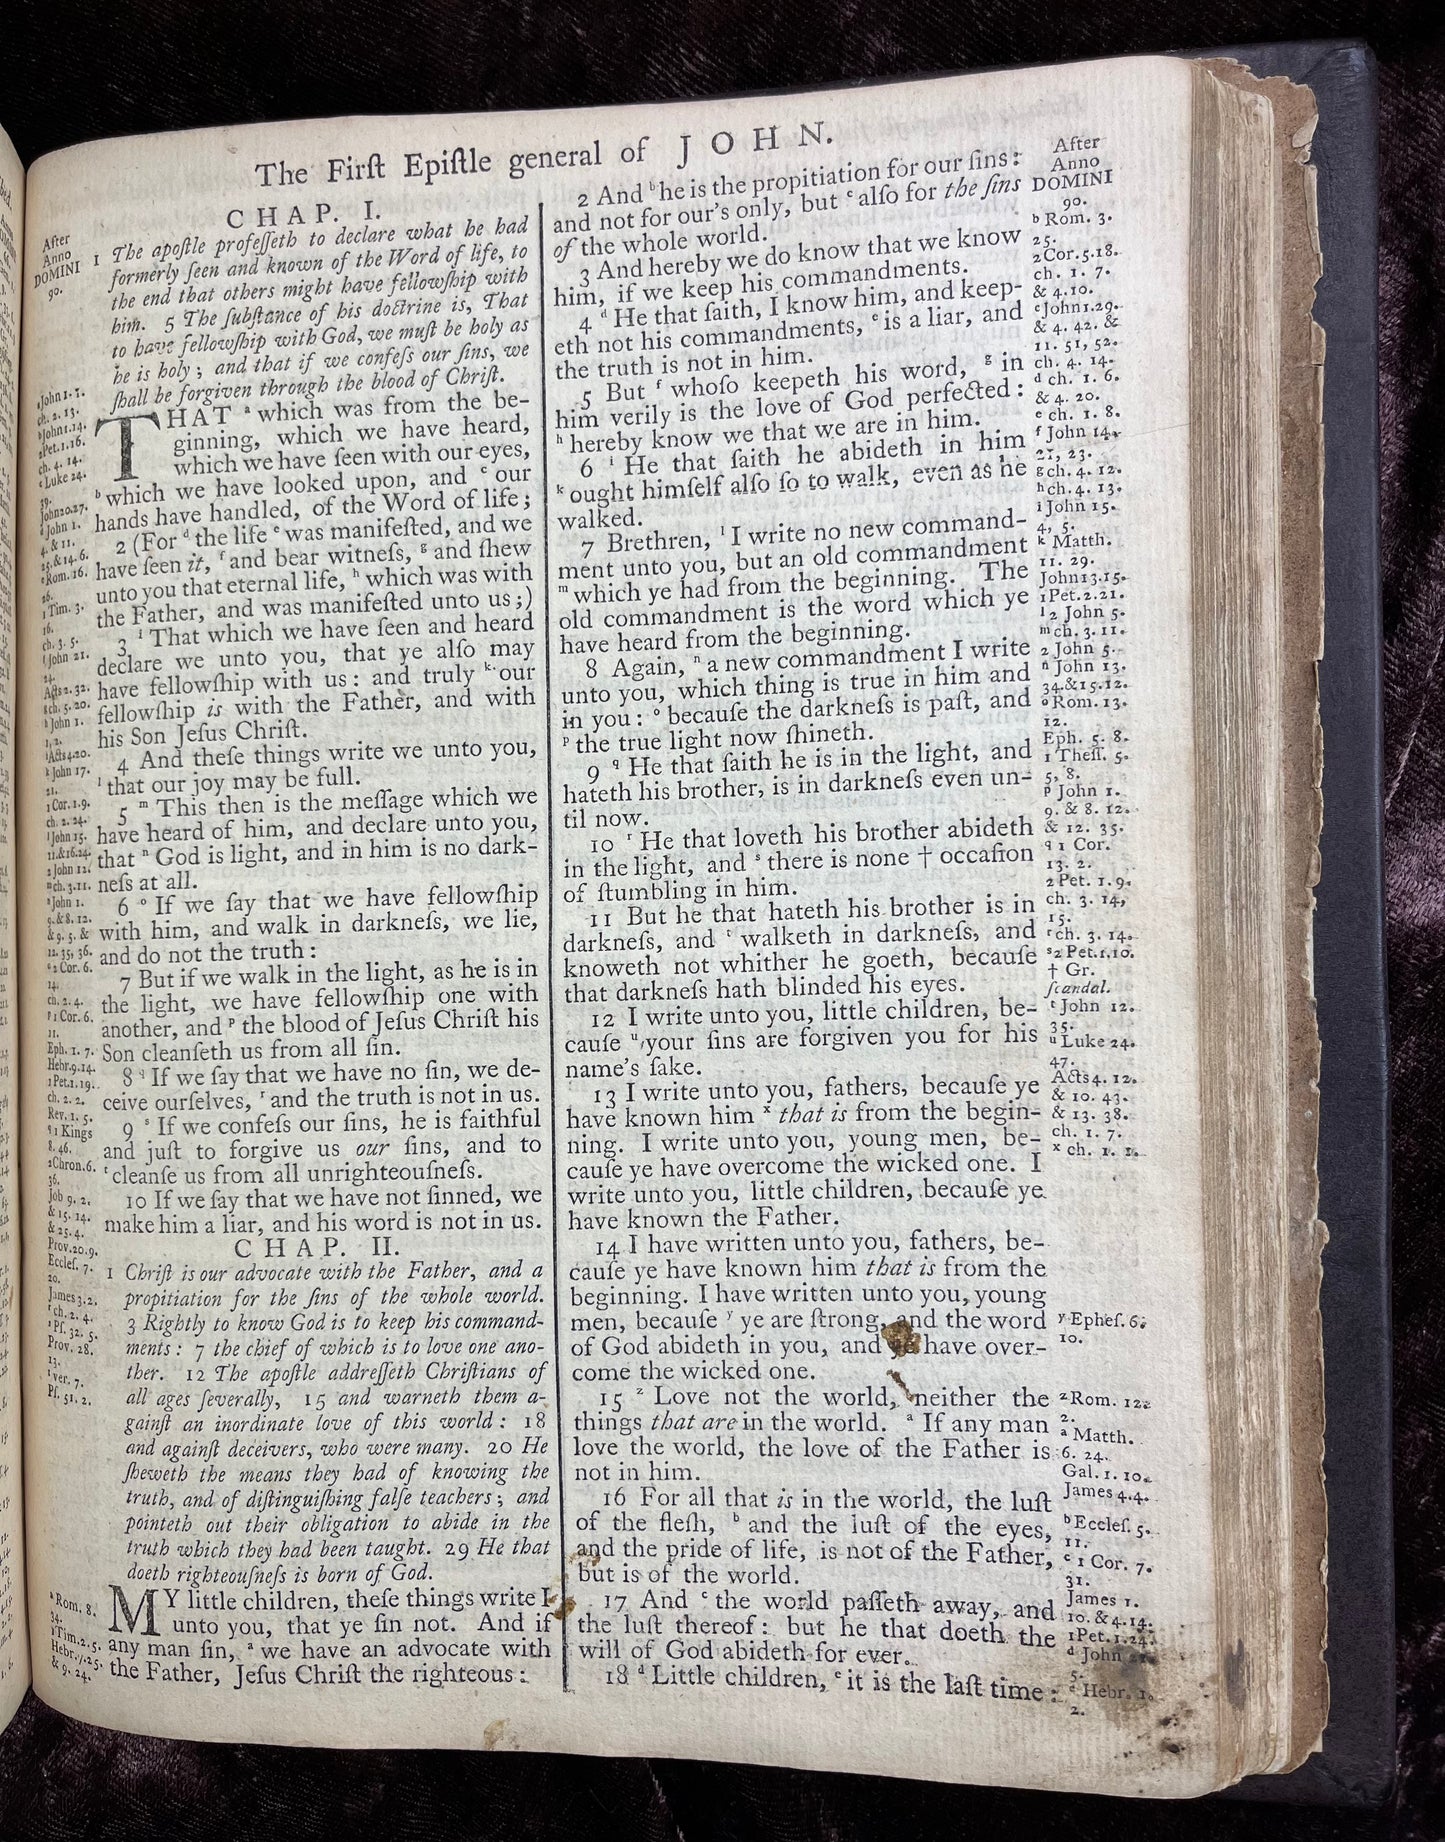 The Firſt Epiſtle general of JOHN.
After
Anno
DOMINI
90.
CHAP. I.
1 The apoſtle profeſſeth to declare what he had
formerly ſeen and known of the Word of life, to
the end that others might have fellowſhip with
him. 5 The ſubſtance of his doctrine is, That
to have fellowſhip with God, we muſt be holy as
he is holy; and that if we confeſs our ſins, we
ſhall be forgiven through the blood of Chriſt.
THAT ᵃ which was from the be-
ginning, which we have heard,
which we have ſeen with our eyes,
ᵇ which we have looked upon, and ᶜ our
hands have handled, of the Word of life;
2 (For ᵈ the life ᵉ was manifeſted, and we
have ſeen it, ᶠ and bear witneſs, ᵍ and ſhew
unto you that eternal life, ʰ which was with
the Father, and was manifeſted unto us;)
3 ⁱ That which we have ſeen and heard
declare we unto you, that ye alſo may
have fellowſhip with us: and truly ᵏ our
fellowſhip is with the Father, and with
his Son Jeſus Chriſt.
4 And theſe things write we unto you,
ˡ that our joy may be full.
5 ᵐ This then is the meſſage which we
have heard of him, and declare unto you,
that ⁿ God is light, and in him is no dark-
neſs at all.
6 ᵒ If we ſay that we have fellowſhip
with him, and walk in darkneſs, we lie,
and do not the truth:
7 But if we walk in the light, as he is in
the light, we have fellowſhip one with
another, and ᵖ the blood of Jeſus Chriſt his
Son cleanſeth us from all ſin.
8 ᑫ If we ſay that we have no ſin, we de-
ceive ourſelves, ʳ and the truth is not in us.
9 ˢ If we confeſs our ſins, he is faithful
and juſt to forgive us our ſins, and to
ᵗ cleanſe us from all unrighteouſneſs.
10 If we ſay that we have not ſinned, we
make him a liar, and his word is not in us.
CHAP. II.
1 Chriſt is our advocate with the Father, and a
propitiation for the ſins of the whole world.
3 Rightly to know God is to keep his command-
ments: 7 the chief of which is to love one ano-
ther. 12 The apoſtle addreſſeth Chriſtians of
all ages ſeverally, 15 and warneth them a-
gainſt an inordinate love of this world: 18
and againſt deceivers, who were many. 20 He
ſheweth the means they had of knowing the
truth, and of diſtinguiſhing falſe teachers; and
pointeth out their obligation to abide in the
truth which they had been taught. 29 He that
doeth righteouſneſs is born of God.
MY little children, theſe things write I
unto you, that ye ſin not. And if
any man ſin, ᵃ we have an advocate with
the Father, Jeſus Chriſt the righteous:
ᵃ John 1. 1.
ch. 2. 13.
ᵇ John 1. 14.
2 Pet. 1. 16.
ch. 4. 14.
ᶜ Luke 24.
39.
John 20. 27.
ᵈ John 1.
4. & 11.
25. & 14. 6.
ᵉ Rom. 16.
26.
1 Tim. 3.
16.
ch. 3. 5.
ᶠ John 21.
24.
Acts 2. 32.
ᵍ ch. 5. 20.
ʰ John 1.
1, 2.
ⁱ Acts 4. 20.
ᵏ John 17.
21.
1 Cor. 1. 9.
ch. 2. 24.
ˡ John 15.
11. & 16. 24.
2 John 12.
ᵐ ch. 3. 11.
ⁿ John 1.
9. & 8. 12.
& 9. 5. &
12. 35, 36.
ᵒ 2 Cor. 6.
14.
ch. 2. 4.
ᵖ 1 Cor. 6.
11.
Eph. 1. 7.
Hebr. 9. 14.
1 Pet. 1. 19.
ch. 2. 2.
Rev. 1. 5.
ᑫ 1 Kings
8. 46.
2 Chron. 6.
36.
Job 9. 2.
& 15. 14.
& 25. 4.
Prov. 20. 9.
Eccleſ. 7.
20.
James 3. 2.
ʳ ch. 2. 4.
ˢ Pſ. 32. 5.
Prov. 28.
13.
ᵗ ver. 7.
Pſ. 51. 2.
ᵃ Rom. 8.
34.
1 Tim. 2. 5.
Hebr. 7. 25.
& 9. 24.
2 And ᵇ he is the propitiation for our ſins:
and not for our's only, but ᶜ alſo for the ſins
of the whole world.
3 And hereby we do know that we know
him, if we keep his commandments.
4 ᵈ He that ſaith, I know him, and keep-
eth not his commandments, ᵉ is a liar, and
the truth is not in him.
5 But ᶠ whoſo keepeth his word, ᵍ in
him verily is the love of God perfected:
ʰ hereby know we that we are in him.
6 ⁱ He that ſaith he abideth in him
ᵏ ought himſelf alſo ſo to walk, even as he
walked.
7 Brethren, ˡ I write no new command-
ment unto you, but an old commandment
ᵐ which ye had from the beginning. The
old commandment is the word which ye
have heard from the beginning.
8 Again, ⁿ a new commandment I write
unto you, which thing is true in him and
in you: ᵒ becauſe the darkneſs is paſt, and
ᵖ the true light now ſhineth.
9 ᑫ He that ſaith he is in the light, and
hateth his brother, is in darkneſs even un-
til now.
10 ʳ He that loveth his brother abideth
in the light, and ˢ there is none † occaſion
of ſtumbling in him.
11 But he that hateth his brother is in
darkneſs, and ᵗ walketh in darkneſs, and
knoweth not whither he goeth, becauſe
that darkneſs hath blinded his eyes.
12 I write unto you, little children, be-
cauſe ᵘ your ſins are forgiven you for his
name's ſake.
13 I write unto you, fathers, becauſe ye
have known him ˣ that is from the begin-
ning. I write unto you, young men, be-
cauſe ye have overcome the wicked one. I
write unto you, little children, becauſe ye
have known the Father.
14 I have written unto you, fathers, be-
cauſe ye have known him that is from the
beginning. I have written unto you, young
men, becauſe ʸ ye are ſtrong, and the word
of God abideth in you, and ye have over-
come the wicked one.
15 ᶻ Love not the world, neither the
things that are in the world. ᵃ If any man
love the world, the love of the Father is
not in him.
16 For all that is in the world, the luſt
of the fleſh, ᵇ and the luſt of the eyes,
and the pride of life, is not of the Father,
but is of the world.
17 And ᶜ the world paſſeth away, and
the luſt thereof: but he that doeth the
will of God abideth for ever.
18 ᵈ Little children, ᵉ it is the laſt time:
After
Anno
DOMINI
90.
ᵇ Rom. 3.
25.
2 Cor. 5. 18.
ch. 1. 7.
& 4. 10.
ᶜ John 1. 29.
& 4. 42. &
11. 51, 52.
ch. 4. 14.
ᵈ ch. 1. 6.
& 4. 20.
ᵉ ch. 1. 8.
ᶠ John 14.
21, 23.
ᵍ ch. 4. 12.
ʰ ch. 4. 13.
ⁱ John 15.
4, 5.
ᵏ Matth.
11. 29.
John 13. 15.
1 Pet. 2. 21.
ˡ 2 John 5.
ᵐ ch. 3. 11.
2 John 5.
ⁿ John 13.
34. & 15. 12.
ᵒ Rom. 13.
12.
Eph. 5. 8.
1 Theſſ. 5.
5, 8.
ᵖ John 1.
9. & 8. 12.
& 12. 35.
ᑫ 1 Cor.
13. 2.
2 Pet. 1. 9.
ch. 3. 14,
15.
ʳ ch. 3. 14.
ˢ 2 Pet. 1. 10.
† Gr.
ſcandal.
ᵗ John 12.
35.
ᵘ Luke 24.
47.
Acts 4. 12.
& 10. 43.
& 13. 38.
ch. 1. 7.
ˣ ch. 1. 1.
ʸ Epheſ. 6.
10.
ᶻ Rom. 12.
2.
ᵃ Matth.
6. 24.
Gal. 1. 10.
James 4. 4.
ᵇ Eccleſ. 5.
11.
ᶜ 1 Cor. 7.
31.
James 1.
10. & 4. 14.
1 Pet. 1. 24.
ᵈ John 21.
5.
ᵉ Hebr. 1.
2.